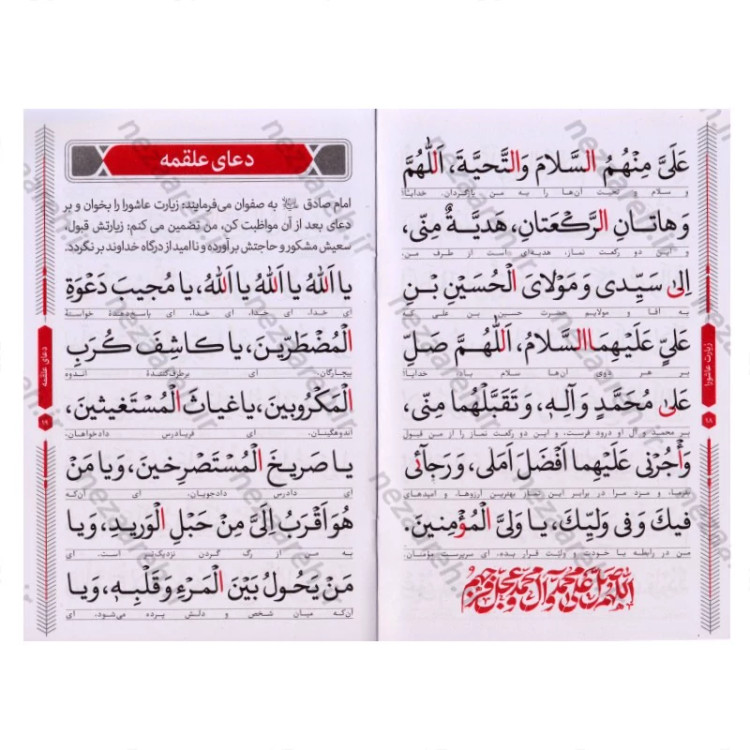 عَلَیَّ مِنْهُمُ السَّلامَ وَالتَّحیَّةَ، اَللّهُمَّ
و سلام و تحیت آن‌ها را به من بازگردان. خدایا!
وَهاتـانِ الرَّکْعَتانِ، هَدیَّـةٌ مِنّی،
و این دو رکعت نماز، هدیه‌ای است از طرف من،
اِلی سَیِّدی وَ مَوْلایَ الْحُسَیْنِ بْنِ
به آقا و مولایم حضرت حسین بن علی که
عَلیٍّ عَلَیْهِمَاالسَّلامُ، اَللّهُـمَّ صَلِّ
بر هر دوی آن‌ها سلام باد! خدایا!
عَلی مُحَمَّدٍ وَآلِهِ، وَتَقَبَّلْهُما مِنّی،
بر محمد و آل او درود فرست، و این دو رکعت نماز را از من قبول
وَاْجُرْنی عَلَیْهِما اَفْضَلَ اَمَلی، وَ رَجآئی
بفرما، و مزد مرا در برابر این نماز بهترین آرزوها، و امیدهای
فیكَ وَفی وَلیِّكَ، یـا وَلیَّ الْمُؤْمِنینَ.
من در رابطه با خودت و ولیّت قرار بده، ای سرپرست مؤمنان.
اللهم صل علی محمد و آل محمد و عجل فرجهم
زیارت عاشورا
۱۸
دعای علقمه
امام صادق به صفوان می‌فرمایند: زیارت عاشورا را بخوان و بر
دعای بعد از آن مواظبت کن، من تضمین می کنم: زیارتش قبول،
سعیش مشکور و حاجتش برآورده و ناامید از درگاه خداوند برنگردد.
یا اَللهُ یا اَللهُ یا اَللهُ، یا مُجیبَ دَعْوَةِ
ای خدا، ای خدا، ای خدا، ای پاسخ‌دهندهٔ خواستهٔ
الْمُضْطَرّینَ، یا کاشِفَ کُرَبِ
بیچارگان، ای برطرف‌کنندهٔ اندوه
الْمَکْروبینَ، یا غیاثَ الْمُسْتَغیثینَ،
اندوهگینان، ای فریادرس دادخواهان،
یـا صَریخَ الْمُسْتَصْرِخینَ، وَیا مَنْ
ای دادرس دادجویان، ای آن‌که
هُوَ اَقْرَبُ اِلَیَّ مِنْ حَبْلِ الْوَریدِ، وَیا
به من از رگ گردن نزدیک‌تر است، ای
مَنْ یَحُولُ بَیْنَ الْمَرْءِ وَقَلْبِهِ، وَیا
آن‌که میان شخص و دلش پرده می‌شود، ای
دعای علقمه
۱۹
nezzareh.ir